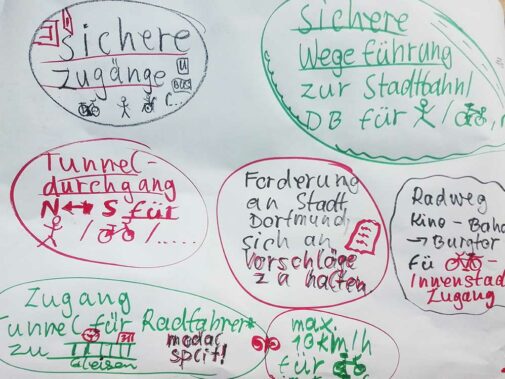 Sichere
Zugänge
U
BUS
Sichere
Wegeführung
zur Stadtbahn/
DB für
Tunnel-
durchgang
N ↔ S für
/ / .....
Forderung
an Stadt
Dortmund
sich an
Vorschläge
zu halten
Radweg
Kino - Bahn
→ Burgtor
fü
Innenstadt
Zugang
Zugang
Tunnel für Radfahrer*
zu
Gleisen
modal
split!
max.
10 km/h
für